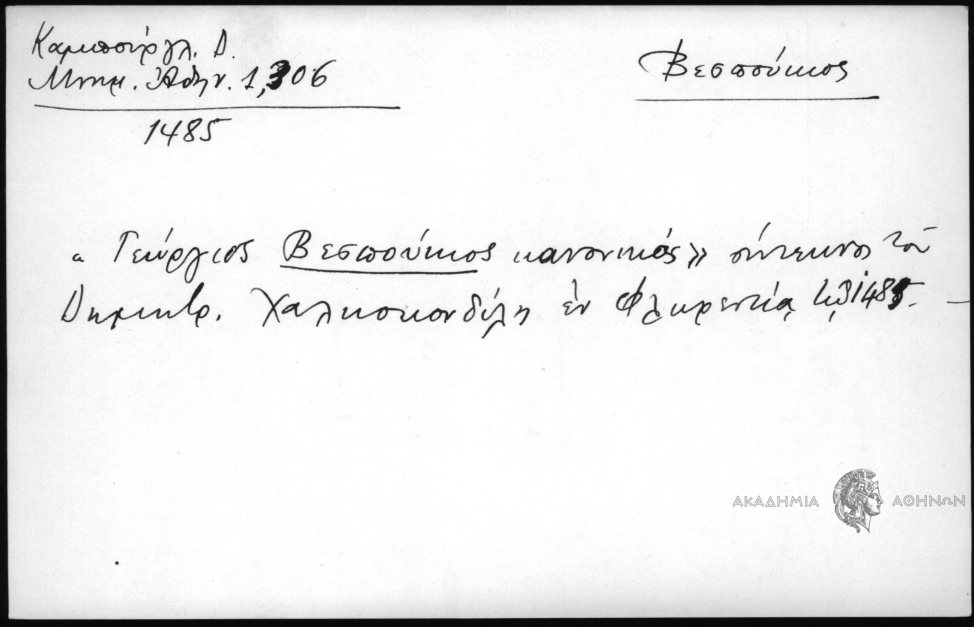 Καμπούργλ. Δ.
Μνημ. Ἀθην. 1,306
1485
Βεσπούκιος
« Γεώργιος Βεσπούκιος κανονικός» σύτεκνος τοῦ
Δημητρ. Χαλκοκονδύλη ἐν Φλωρεντίᾳ τῷ 1485. —
ΑΚΑΔΗΜΙΑ ΑΘΗΝΩΝ